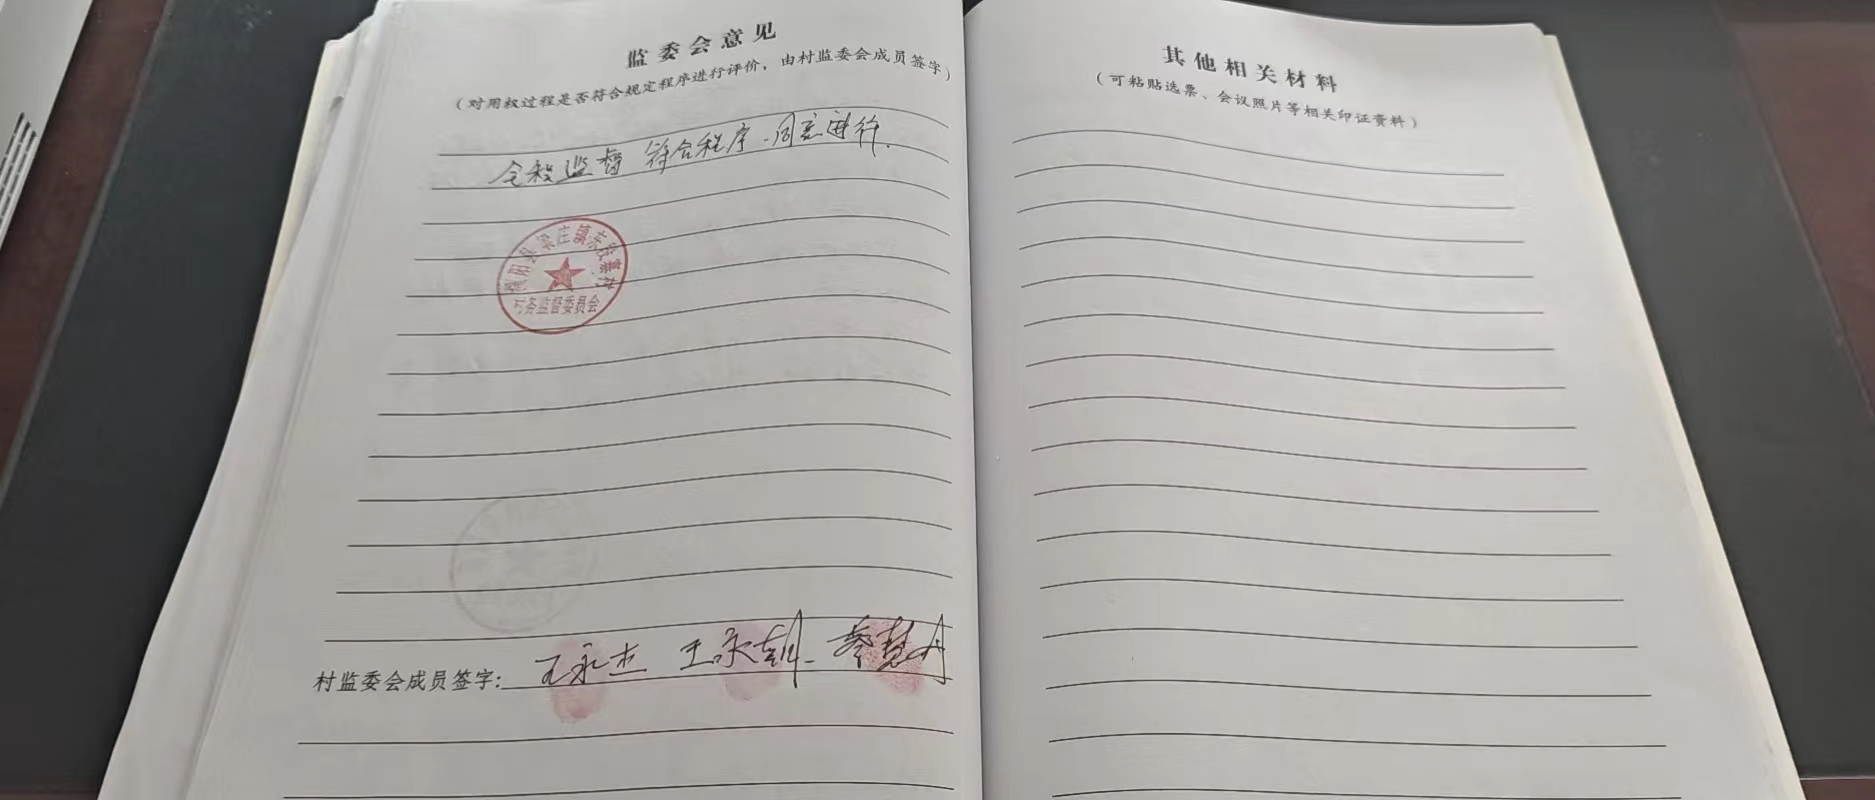 监委会意见
（对用权过程是否符合规定程序进行评价，由村监委会成员签字）
全程监督 符合程序.同意进行.
梁庄镇东
村务监督委员会
村监委会成员签字：王永杰 王永朝 秦慧丹
其他相关材料
（可粘贴选票、会议照片等相关印证资料）